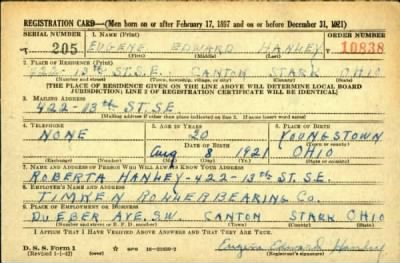 REGISTRATION CARD—(Men born on or after February 17, 1897 and on or before December 31, 1921)
SERIAL NUMBER 1. NAME (Print) ORDER NUMBER
205 EUGENE EDWARD HANLEY 10838
(First) (Middle) (Last)
2. PLACE OF RESIDENCE (Print)
422-13th ST. S.E. CANTON STARK OHIO
(Number and street) (Town, township, village, or city) (County) (State)
[THE PLACE OF RESIDENCE GIVEN ON THE LINE ABOVE WILL DETERMINE LOCAL BOARD
JURISDICTION; LINE 2 OF REGISTRATION CERTIFICATE WILL BE IDENTICAL]
3. MAILING ADDRESS
422-13th ST. SE
[Mailing address if other than place indicated on line 2. If same insert word same]
4. TELEPHONE 5. AGE IN YEARS 6. PLACE OF BIRTH
NONE 20 YOUNGSTOWN
DATE OF BIRTH (Town or county)
Aug 8 1921 OHIO
(Exchange) (Number) (Mo.) (Day) (Yr.) (State or country)
7. NAME AND ADDRESS OF PERSON WHO WILL ALWAYS KNOW YOUR ADDRESS
ROBERTA HANLEY-422-13th ST. SE.
8. EMPLOYER'S NAME AND ADDRESS
TIMKEN ROLLER BEARING CO.
9. PLACE OF EMPLOYMENT OR BUSINESS
DUEBER AVE. S.W. CANTON STARK OHIO
(Number and street or R. F. D. number) (Town) (County) (State)
I AFFIRM THAT I HAVE VERIFIED ABOVE ANSWERS AND THAT THEY ARE TRUE.
D. S. S. Form 1
(Revised 1-1-42) Eugene Edward Hanley